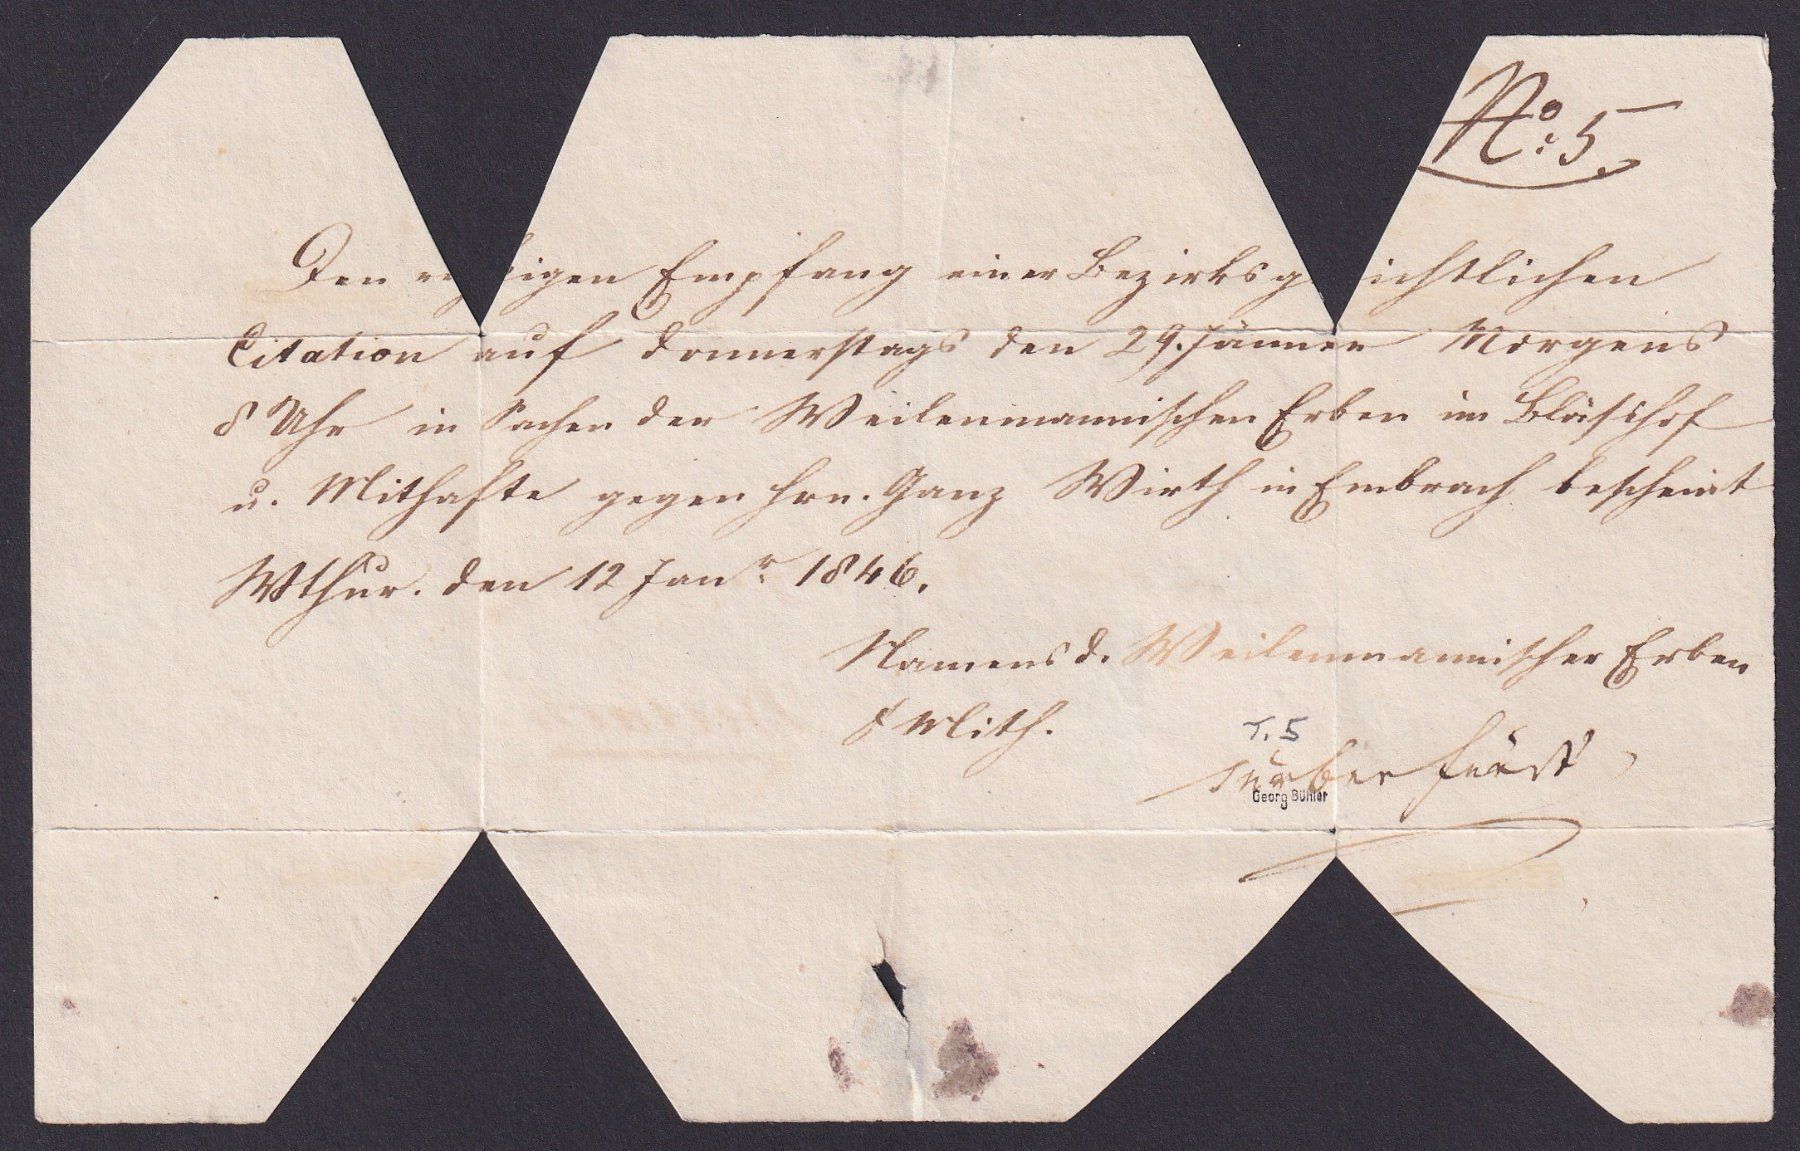 No: 5.
Den igen Empfang einer Bezirksg ichtlichen
Citation auf Donnerstags den 29. Jänner Morgens
8 Uhr in Sachen der Weilenmannischen Erben im Bläsihof
u. Mithafte gegen Hrn. Ganz Wirth in Embrach bescheint
Wthur. den 12 Janr. 1846.
Namens d. Weilenmannischer Erben
& Mith.
T. 5
Georg Bühler